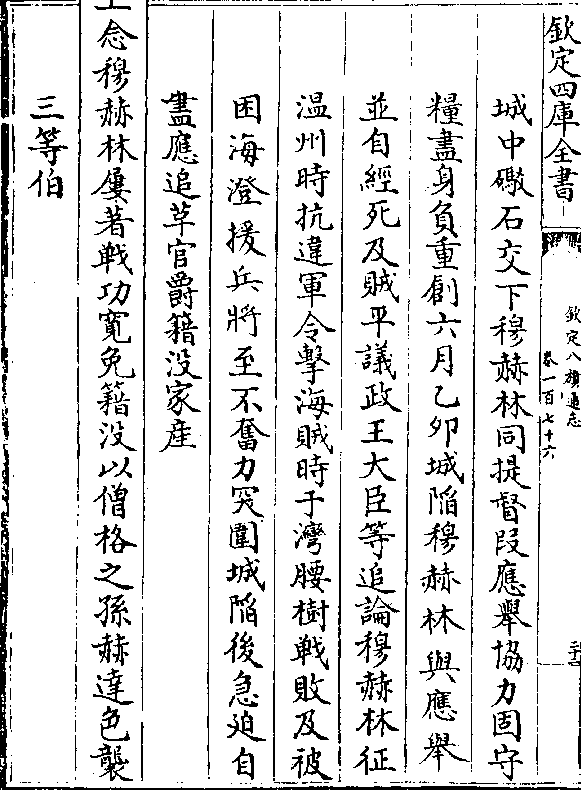 欽定四庫全書
欽定八旗通志
卷一百七十六
城中礮石交下穆赫林同提督段應舉協力固守
糧盡身負重創六月乙卯城陷穆赫林與應舉
並自經死及賊平議政王大臣等追論穆赫林征
温州時抗違軍令擊海賊時于灣腰樹戰敗及被
困海澄援兵將至不奮力突圍城陷後急迫自
盡應追革官爵籍没家産
上念穆赫林屢著戰功寛免籍没以僧格之孫赫達色襲
三等伯